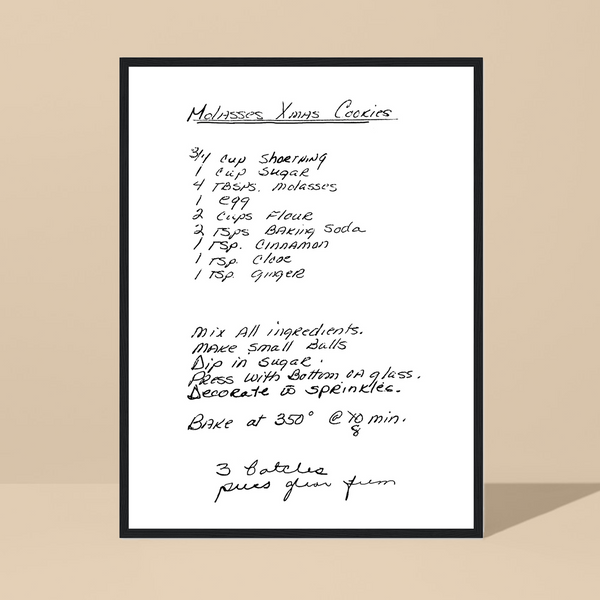 Molasses Xmas Cookies
3/4 cup Shortning
1 cup Sugar
4 TBSPS. Molasses
1 egg
2 cups Flour
2 TSPS Baking Soda
1 TSP. Cinnamon
1 TSP. Clove
1 TSP. Ginger
Mix All ingredients.
Make Small Balls
Dip in Sugar.
Press with Bottom of glass.
Decorate w sprinkles.
Bake at 350° @ 10 min.
8
3 batches